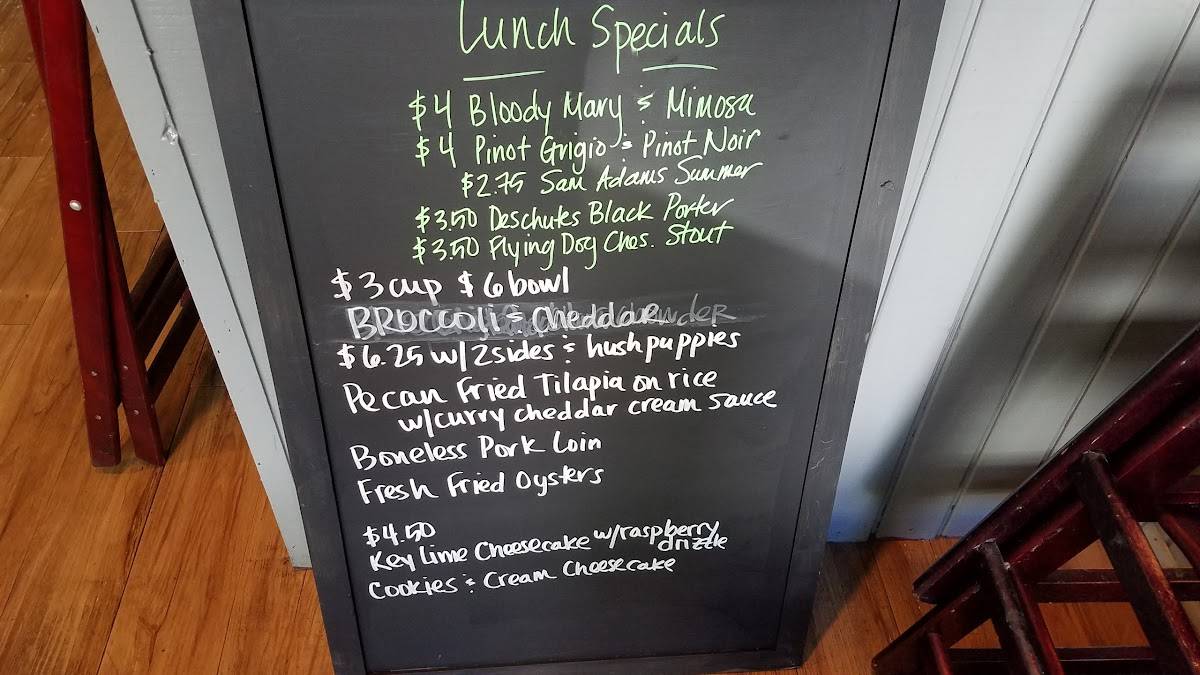 Lunch Specials
$4 Bloody Mary & Mimosa
$4 Pinot Grigio & Pinot Noir
$2.75 Sam Adams Summer
$3.50 Deschutes Black Porter
$3.50 Flying Dog Ches. Stout
$3 cup $6 bowl
BROCCOli & Cheddar
$6.25 w/2sides & hushpuppies
Pecan Fried Tilapia on rice
w/curry cheddar cream sauce
Boneless Pork Loin
Fresh Fried Oysters
$4.50
Key Lime Cheesecake w/raspberry drizzle
Cookies & Cream Cheesecake